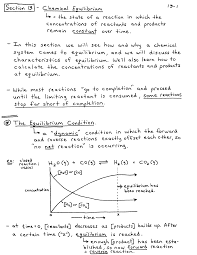 13-1
Section 13 - Chemical Equilibrium
↳ = the state of a reaction in which the
concentrations of reactants and products
remain constant over time.
- In this section we will see how and why a chemical
system comes to equilibrium, and we will discuss the
characteristics of equilibrium. We'll also learn how to
calculate the concentrations of reactants and products
at equilibrium.
- While most reactions "go to completion" and proceed
until the limiting reactant is consumed, some reactions
stop far short of completion.
The Equilibrium Condition
↳ = a "dynamic" condition in which the forward
and reverse reactions exactly offset each other, so
"no net reaction" is occurring.
ex: closed reaction: H₂O(g) + CO(g) ⇌ H₂(g) + CO₂(g)
concentration
equilibrium has
been reached.
time
- at time=0, [reactants] decreases as [products] builds up. After
a certain time, equilibrium is reached.
↳ enough [product] has been est-
ablished, so now forward reaction
= reverse reaction.